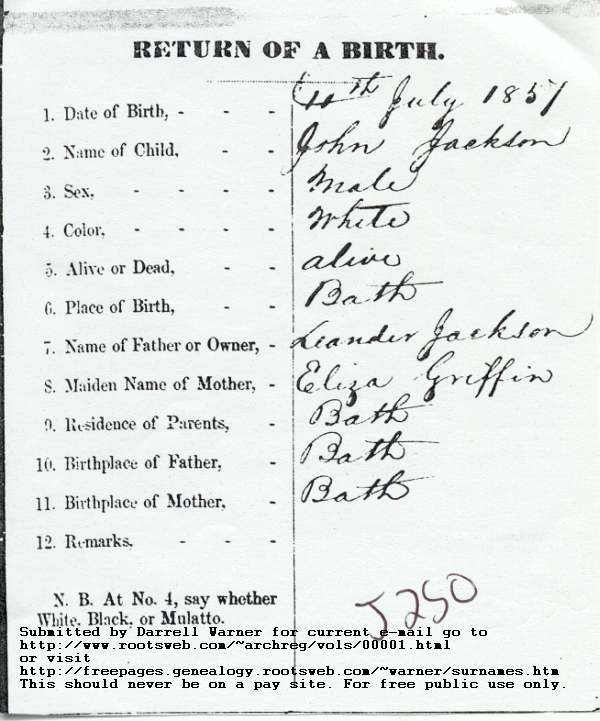 RETURN OF A BIRTH.
1. Date of Birth, - - - 11th July 1857
2. Name of Child, - - John Jackson
3. Sex, - - - - Male
4. Color, - - - - White
5. Alive or Dead, - - alive
6. Place of Birth, - - Bath
7. Name of Father or Owner, - Leander Jackson
8. Maiden Name of Mother, - Eliza Griffin
9. Residence of Parents, - Bath
10. Birthplace of Father, - Bath
11. Birthplace of Mother, - Bath
12. Remarks. - - -
N. B. At No. 4, say whether
White, Black, or Mulatto.
J250
Submitted by Darrell Warner for current e-mail go to
http://www.rootsweb.com/~archreg/vols/00001.html
or visit
http://freepages.genealogy.rootsweb.com/~warner/surnames.htm
This should never be on a pay site. For free public use only.